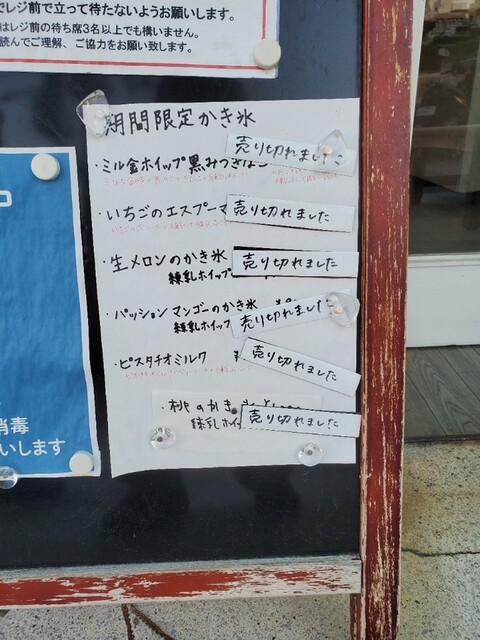 でレジ前で立って待たないようお願いします。
はレジ前の待ち席3名以上でも構いません。
読んでご理解、ご協力をお願い致します。
期間限定かき氷
・ミルク金ホイップ 黒みつきなこ
売り切れました
・いちごのエスプーマ
売り切れました
・生メロンのかき氷
練乳ホイップ
売り切れました
・パッションマンゴーのかき氷
練乳ホイップ
売り切れました
・ピスタチオミルク
売り切れました
・桃のかき氷
練乳ホイ
売り切れました
消毒
いします